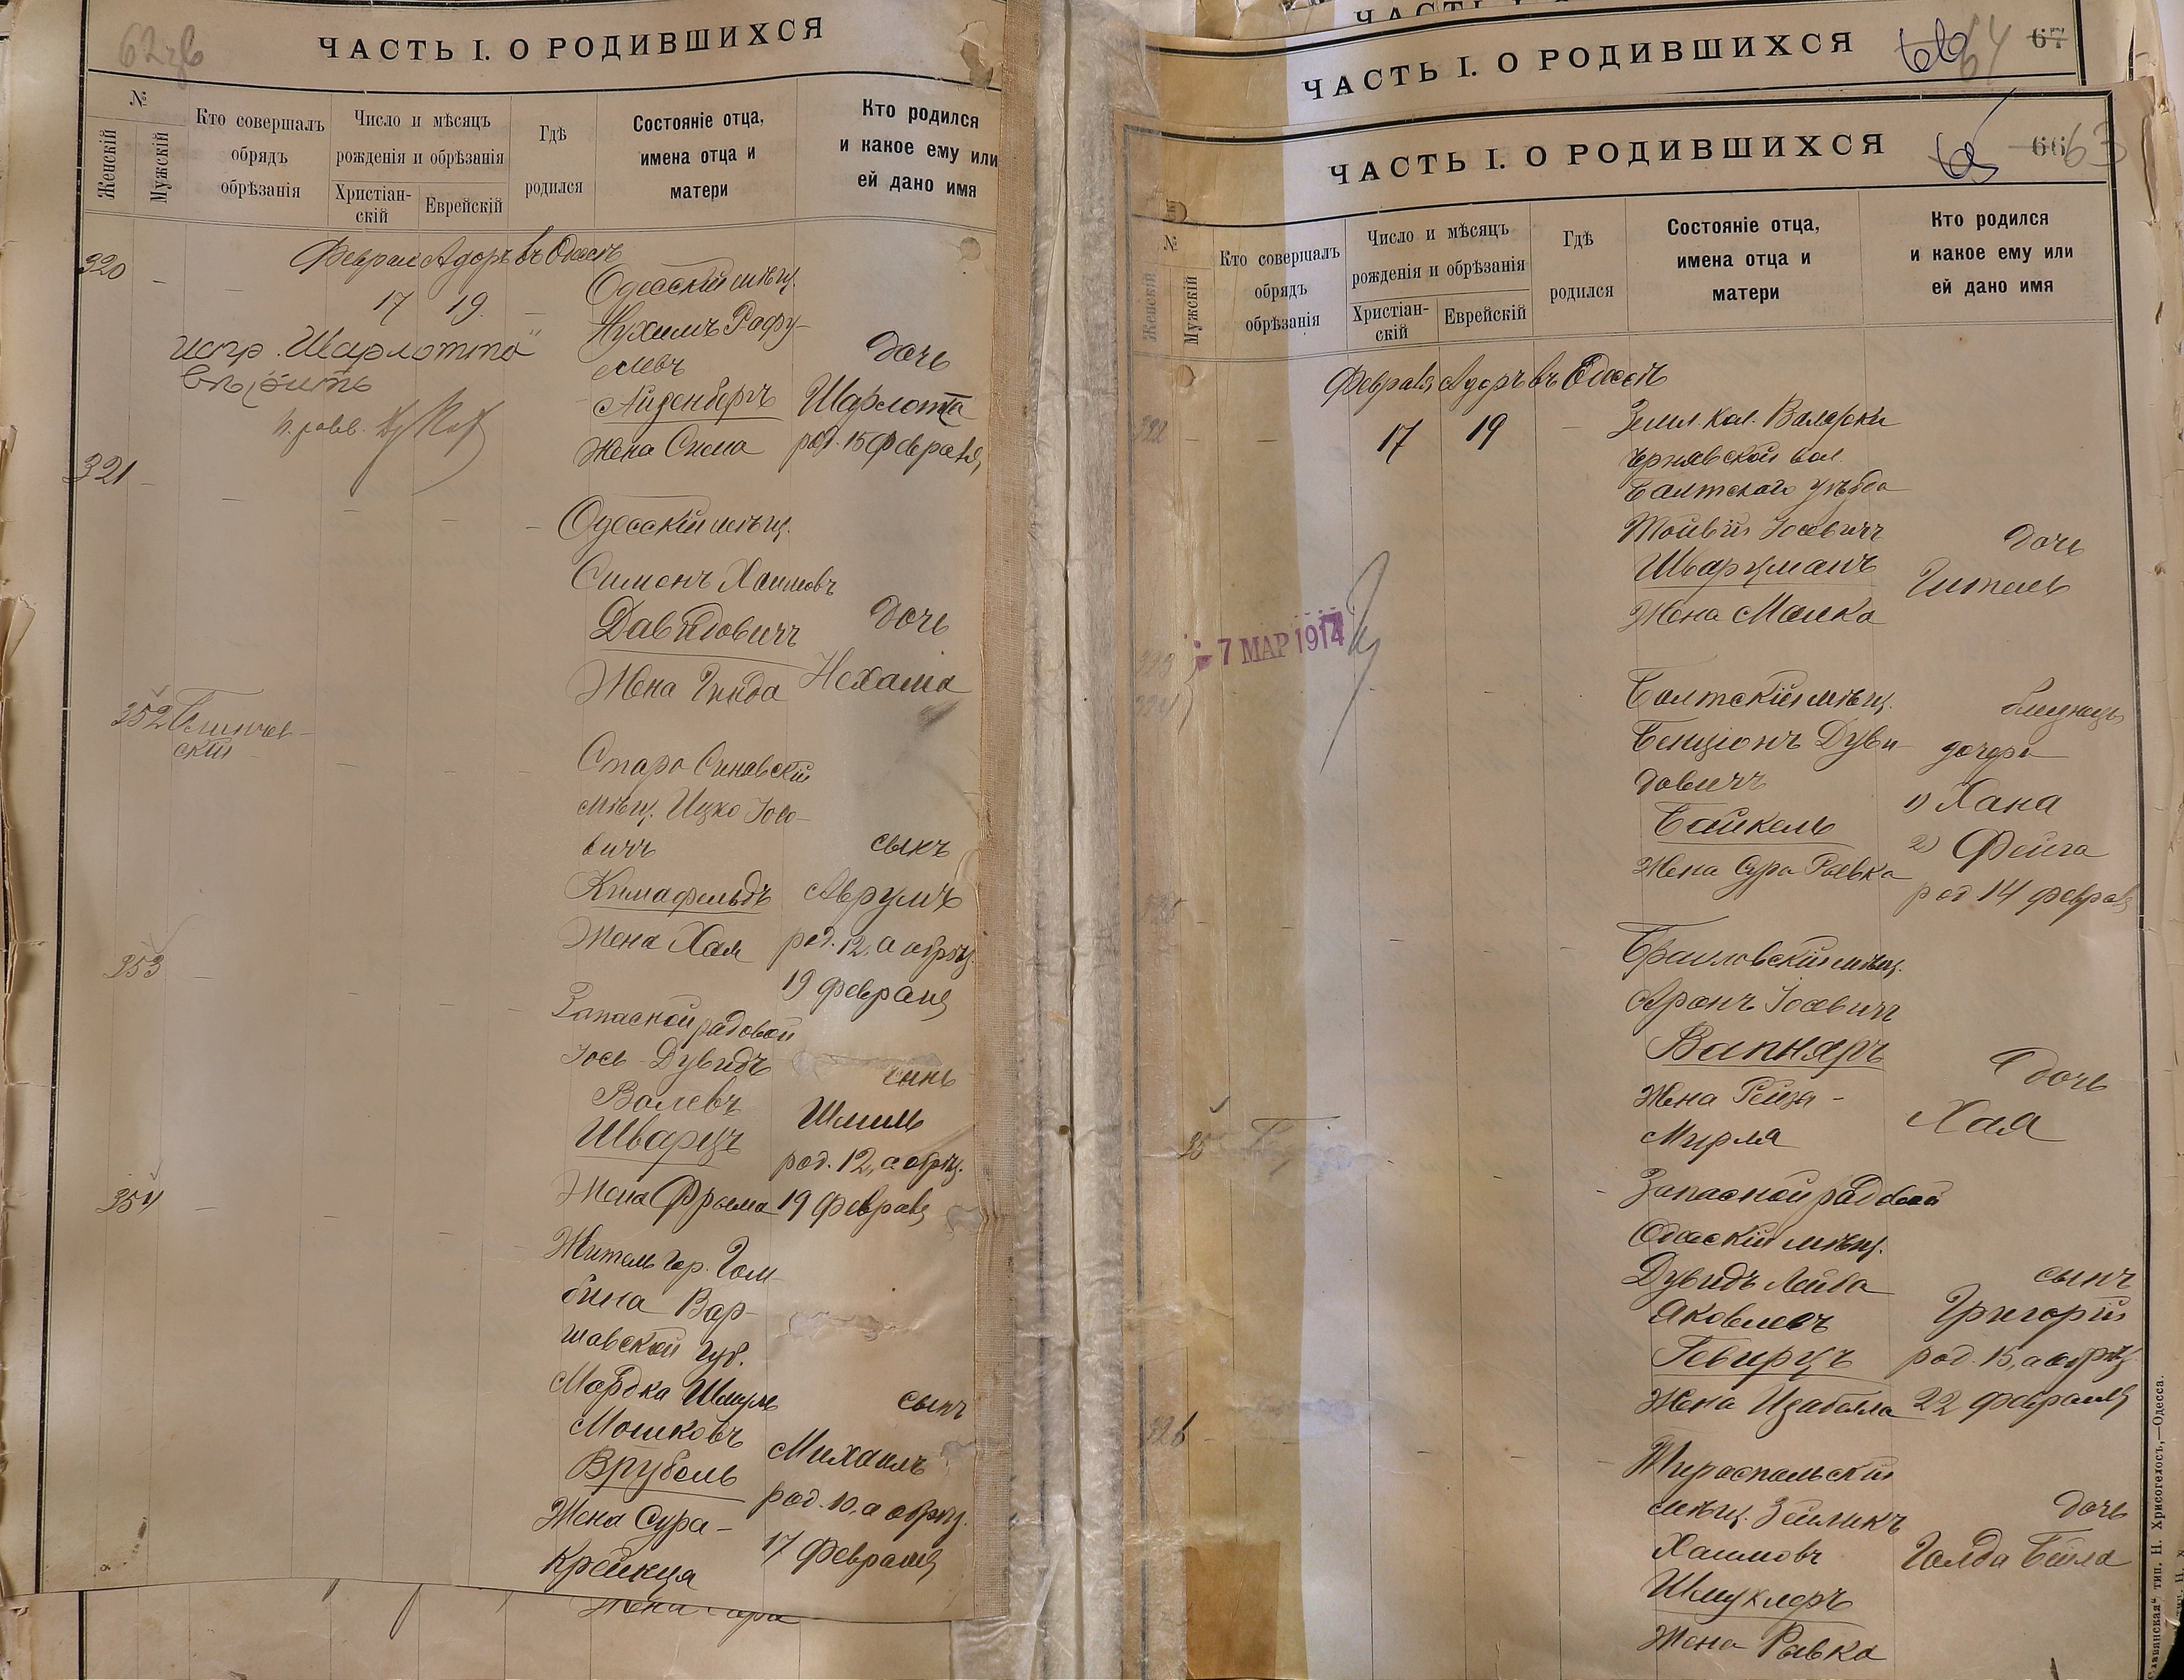 ЧАСТЬ I. О РОДИВШИХСЯ
№
Женскій
Мужскій
Кто совершалъ
обрядъ
обрѣзанія
Число и мѣсяцъ
рожденія и обрѣзанія
Христіан-
скій
Еврейскій
Гдѣ
родился
Состояніе отца,
имена отца и
матери
Кто родился
и какое ему или
ей дано имя
Февраля Адоръ въ Одессѣ
320
17 19
Одесскій мѣщ.
Нухимъ Рафу-
левъ
Айзенбергъ
Жена Сима
дочь
Шарлотта
род. 15 февраля
испр. "Шарлотта"
321
Одесскій мѣщ.
Симонъ Хаимовъ
Давидовичъ
Жена Гинда
Дочь
Нехама
352
Старо Синявскій
мѣщ. Ицко Іосе-
вичъ
Кимафельдъ
Жена Хая
сынъ
Аврумъ
род. 12, а обрѣз.
19 февраля
353
Запасной рядовой
Іось-Дувидъ
Волевъ
Шварцъ
Жена Фрима
сынъ
Шмиль
род. 12, а обрѣз.
19 февраля
354
Житель гор. Гом-
бина Вар-
шавской губ.
Мордка Шмуль
Мошковъ
Врубель
Жена Сура-
Крейнца
сынъ
Михаилъ
род. 10, а обрѣз.
17 февраля
ЧАСТЬ I. О РОДИВШИХСЯ
64
67
ЧАСТЬ I. О РОДИВШИХСЯ
65
66
63
№
Женскій
Мужскій
Кто совершалъ
обрядъ
обрѣзанія
Число и мѣсяцъ
рожденія и обрѣзанія
Христіан-
скій
Еврейскій
Гдѣ
родился
Состояніе отца,
имена отца и
матери
Кто родился
и какое ему или
ей дано имя
Февраля Адоръ въ Одессѣ
322
17 19
Земл. кол.
Чернявской вол.
Балтскаго уѣзда
Тойвій Іосевичъ
Шварцманъ
Жена Малка
дочь
Гитель
7 МАР 1914
323
324
Балтскій мѣщ.
Бенціонъ Дуви-
довичъ
Байкель
Жена Сура Ривка
близнецы
дочери
1) Хана
2) Фейга
род 14 февраля
325
Браиловскій мѣщ.
Аронъ Іосевичъ
Вапняръ
Жена Рейза-
Мирля
дочь
Хая
Запасной рядовой
Одесскій мѣщ.
Дувидъ Лейба
Яковлевъ
Гевирцъ
Жена Изабелла
сынъ
Григорій
род. 15, а обрѣз.
22 февраля
326
Тираспольскій
мѣщ. Зейликъ
Хаимовъ
Шмуклеръ
Жена Ривка
дочь
Голда Бейла
тип. Н. Хрисогелосъ,—Одесса.